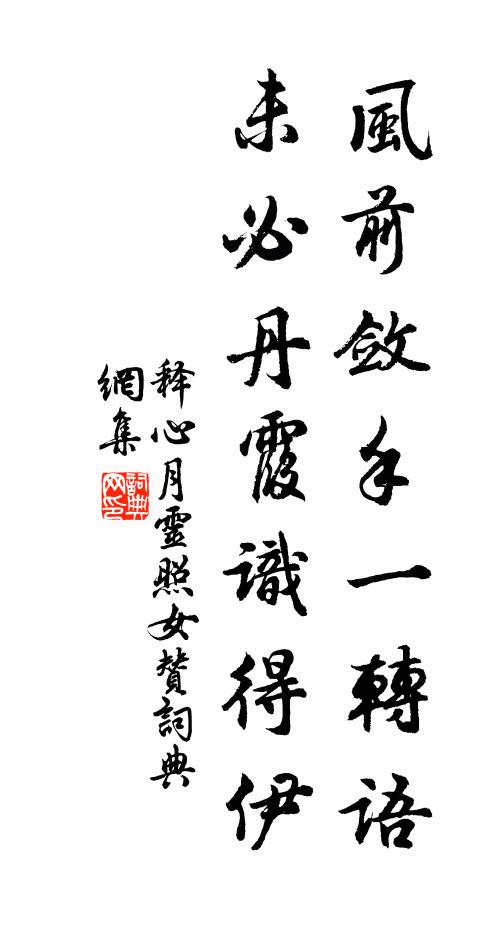 風前斂手一轉語
未必丹霞識得伊
释心月靈照女贊詞典
網集
詞典
网印